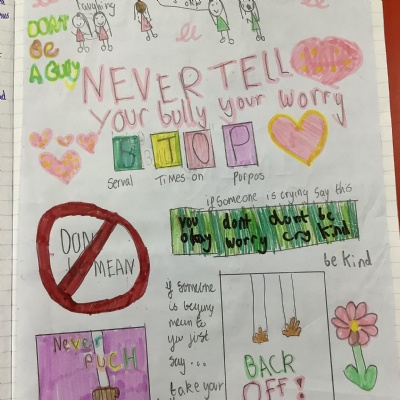 laughing
DON'T
Be
A Bully
NEVER TELL
Your bully your worry
STOP
Serval Times on Purpos
if someone is crying say this
you dont dont be
okay worry cry kind
be kind
DON
MEAN
if someone
is beging
mean to
you just
say...
take your
Never
PUCH
BACK
OFF!